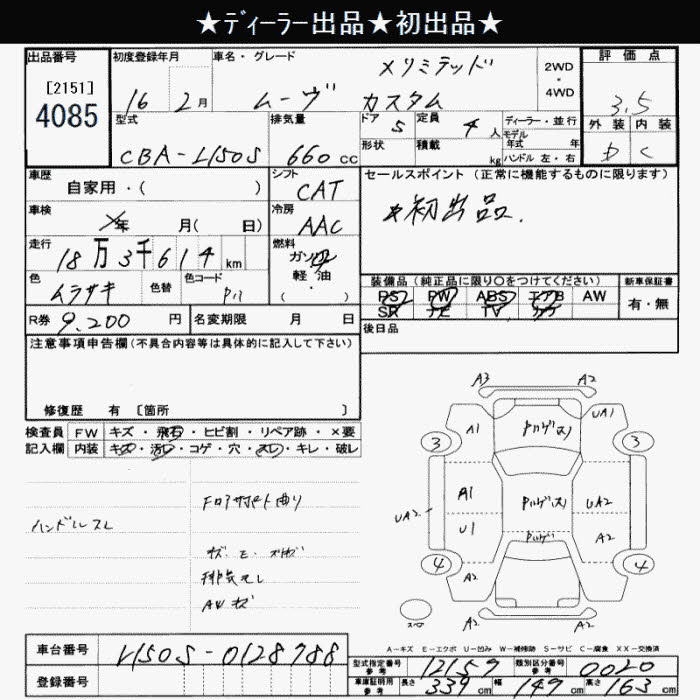 ★ディーラー出品★初出品★
出品番号
[2151]
4085
初度登録年月
16 2月
車名・グレード
ムーヴ カスタム
メリミテッド
2WD
・
4WD
評価点
3.5
外装 内装
D C
型式
CBA-L150S
排気量
660 cc
ドア
5
定員
4 人
ディーラー・並行
モデル
年式 年
形状
積載
kg
ハンドル 左・右
車歴
自家用・( )
シフト
CAT
セールスポイント (正常に機能するものに限ります)
*初出品.
車検
年 月( 日)
冷房
AAC
走行
18万3千614 km
燃料
ガソ
軽・油
( ・ )
色
ムラサキ
色替
色コード
P11
装備品 (純正品に限り○をつけてください)
PS PW ABS エアB AW
SR ナビ TV カワ
新車保証書
有・無
R券 9.200 円
名変期限 月 日
後日品
注意事項申告欄(不具合内容等は具体的に記入して下さい)
修復歴 有 [箇所 ]
検査員
記入欄
FW キズ・飛石・ヒビ割・リペア跡・×要
内装 キズ・汚レ・コゲ・穴・スレ・キレ・破レ
ハンドルスレ
排気モレ
AWキズ
A3 A2
A1 UA1
3 3
A1 UA2
UA2 U1 A2
4 4
A2 A2
A2 A2
A-キズ E-エクボ U-凹み W-補修跡 S-サビ C-腐食 XX-交換済
車台番号
L150S-0128988
登録番号
型式指定番号
参考
12157
類別区分番号
参考
0020
車庫証明用
参考
長さ 339 cm 幅 149 cm 高さ 163 cm